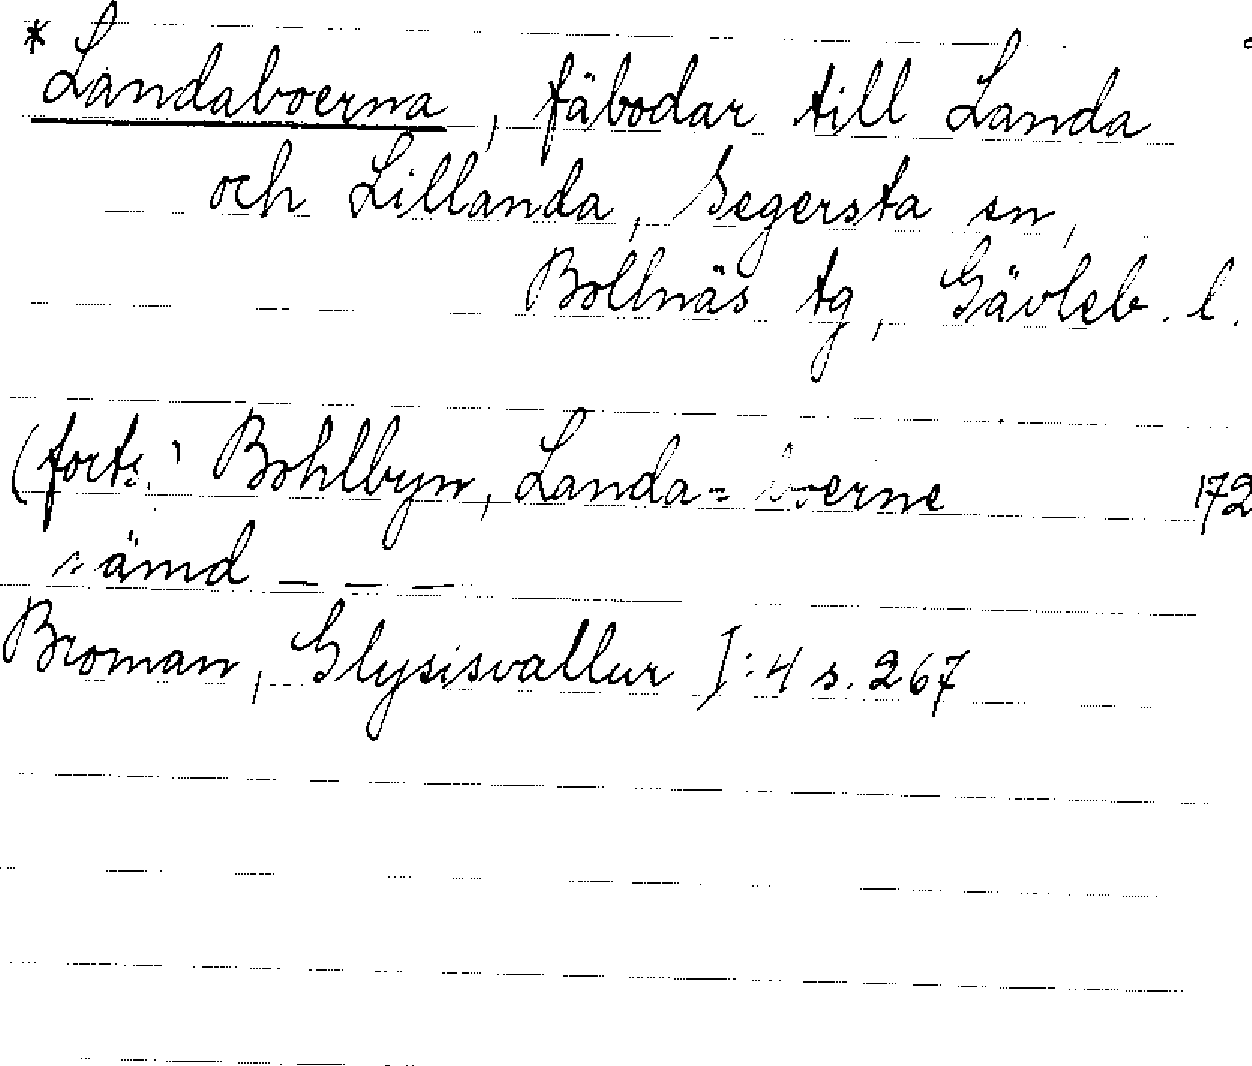 * Landaboerna, fäbodar till Landa
och Lillanda, Segersta sn,
Bollnäs tg, Gävleb. l.
(forts.) Bohlbyn, Landa= boerne 172
nämd — — —
Broman, Glysisvallur I:4 s. 267